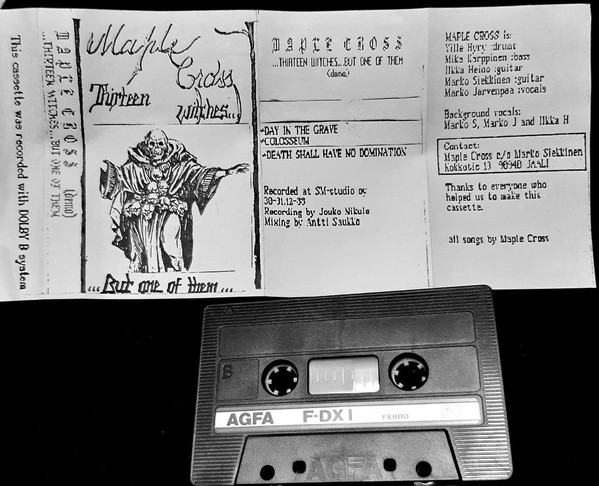 This cassette was recorded with DOLBY B system
MAPLE CROSS (demo)
...THIRTEEN WITCHES...BUT ONE OF THEM
Maple
Cross
Thirteen
witches...
...But one of them...
MAPLE CROSS
...THIRTEEN WITCHES...BUT ONE OF THEM
(demo)
-DAY IN THE GRAVE
-COLOSSEUM
-DEATH SHALL HAVE NO DOMINATION
Recorded at SM-studio oy
30-31.12-89
Recording by Jouko Nikula
Mixing by Antti Saukko
MAPLE CROSS is:
Ville Hyry :drums
Mika Karppinen :bass
Ilkka Heino :guitar
Marko Siekkinen :guitar
Marko Jarvenpaa :vocals
Background vocals:
Marko S, Marko J and Ilkka H
Contact:
Maple Cross c/o Marko Siekkinen
Kokkotie 13 90940 JAALI
Thanks to everyone who
helped us to make this
cassette.
all songs by Maple Cross
A
B
AGFA F-DX I FERRO
AGFA